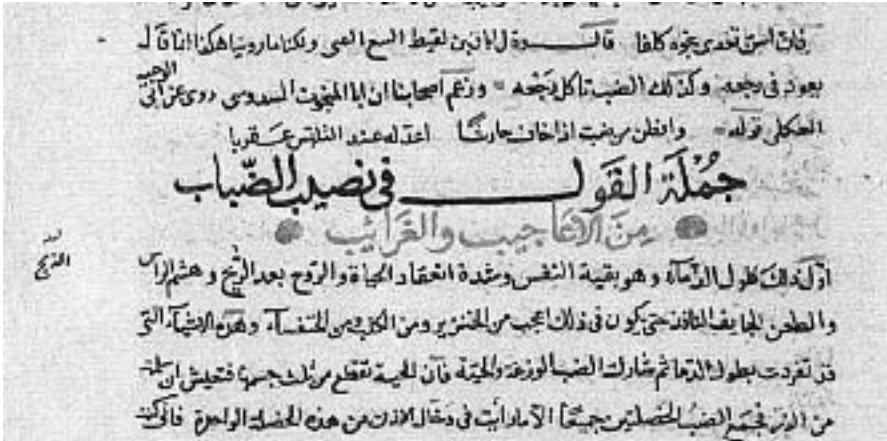 فان السن تغدى بجوه كلها قالـــوة لا باتين لقيط السمع العمى ولكنا ما روينا هكذا انما قال
يعود فى رجعه وكذلك الضب ياكل رجعه وزعم اصحابنا ان ابا المنجوف السدوسى روى عن ابى الوجيه
العكلى قوله وافطن من ضب اذا خاف حارشا اعد له عند التلمس عقربا
جُمْلَة القَولــــــ فى نصيب الضّباب
مِنَ الاعَاجيب والغَرَايب
اوّل ذلك طول الذمآء وهو بقية النفس وشدة انعقاد الحياة والروح بعد الذبح وهشم الراس
الذبح
والطعن الجايف النافذ حتى يكون فى ذلك اعجب من الخنزير ومن الكلب ومن الخنفسآء وهذه الاشيآء التى
قد تفردت بطول الذما ثم شارك الضب الوزغة والحيّة فان الحية تقطع من ثلث جسمها فتعيش ان سلمت
من الذر فجمع الضبّ الخصلتين جميعًا الا ما رايت فى دخال الاذن من هذه الخصلة الواحدة فانى كنت